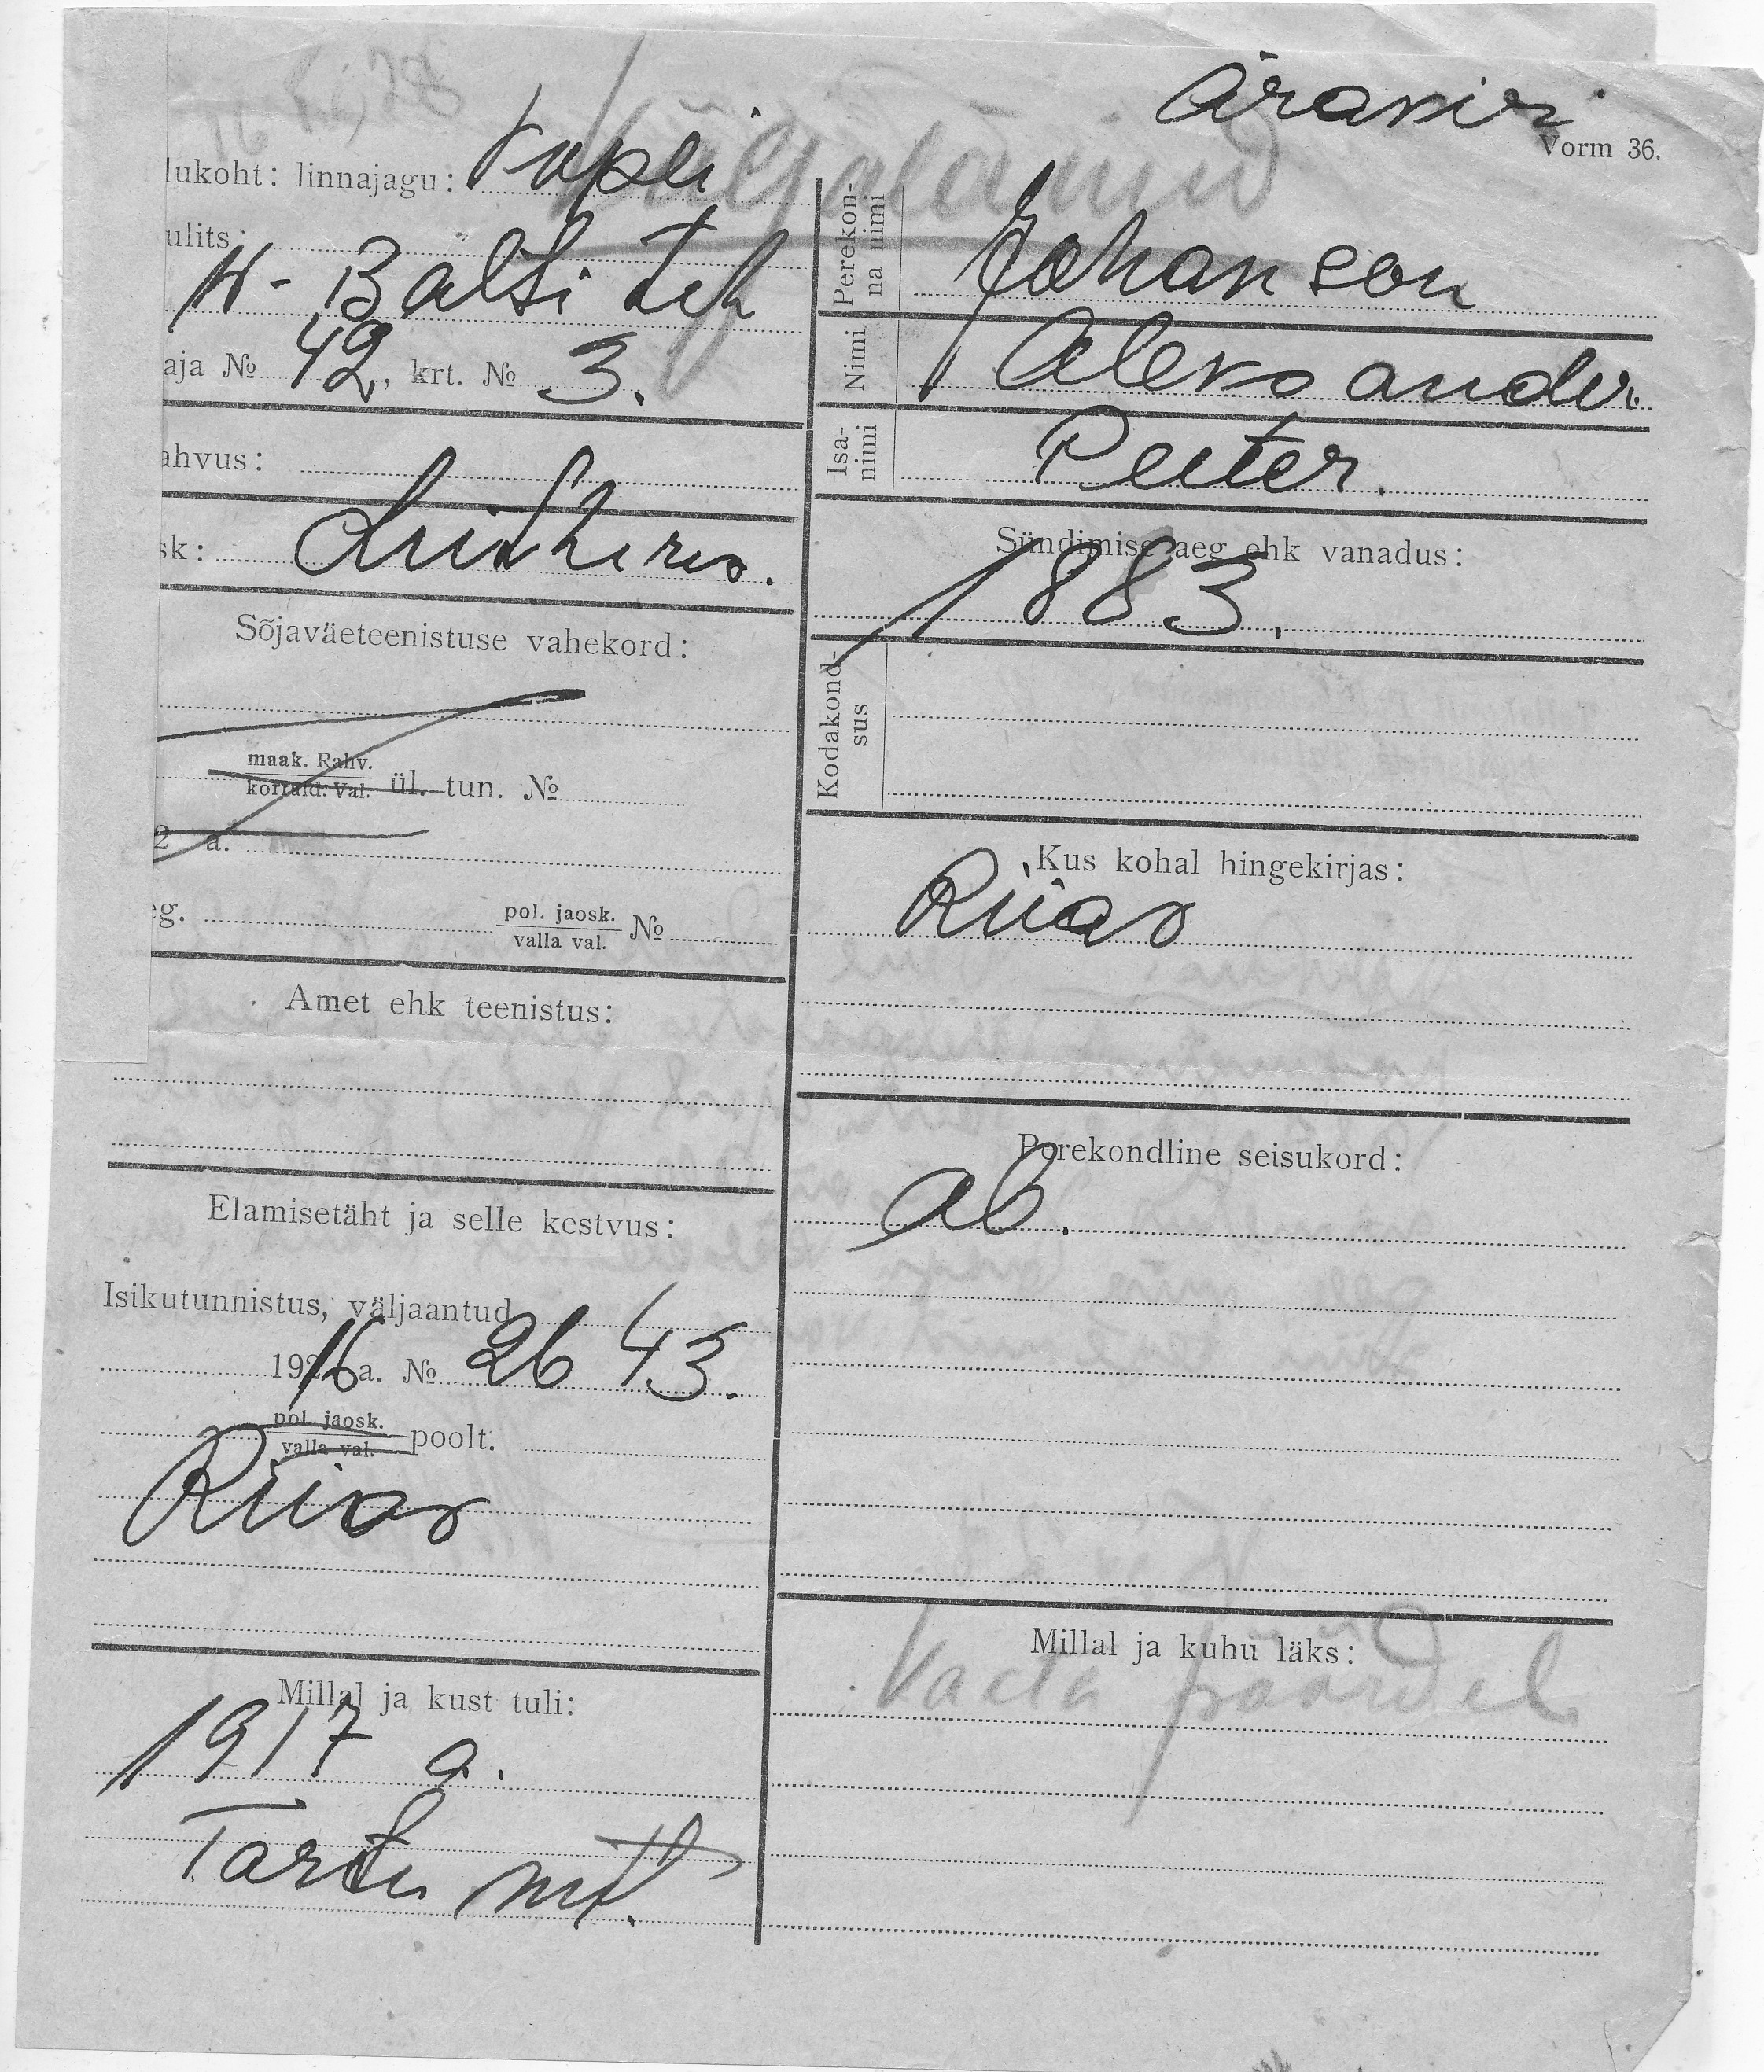 Ärakiri
Vorm 36.
Väljaläinud
lukoht: linnajagu: Kopli
ulits:
W- Balti teh
aja № 42, krt. № 3.
ahvus:
sk: Luther.
Sõjaväeteenistuse vahekord:
maak. Rahv.
korrald. Val. ül. tun. №
2 a.
eg. pol. jaosk. №
valla val.
Amet ehk teenistus:
Elamisetäht ja selle kestvus:
Isikutunnistus, väljaantud
1916 a. № 2643.
pol. jaosk.
valla val. poolt.
Riias
Millal ja kust tuli:
1917 a.
Tartu mnt.
Perekon-
na nimi
Johanson
Nimi Aleksander.
Isa-
nimi
Peeter.
Sündimise aeg ehk vanadus:
1883.
Kodakond-
sus
Kus kohal hingekirjas:
Riias
Perekondline seisukord:
ab.
Millal ja kuhu läks:
Vaata pöördel